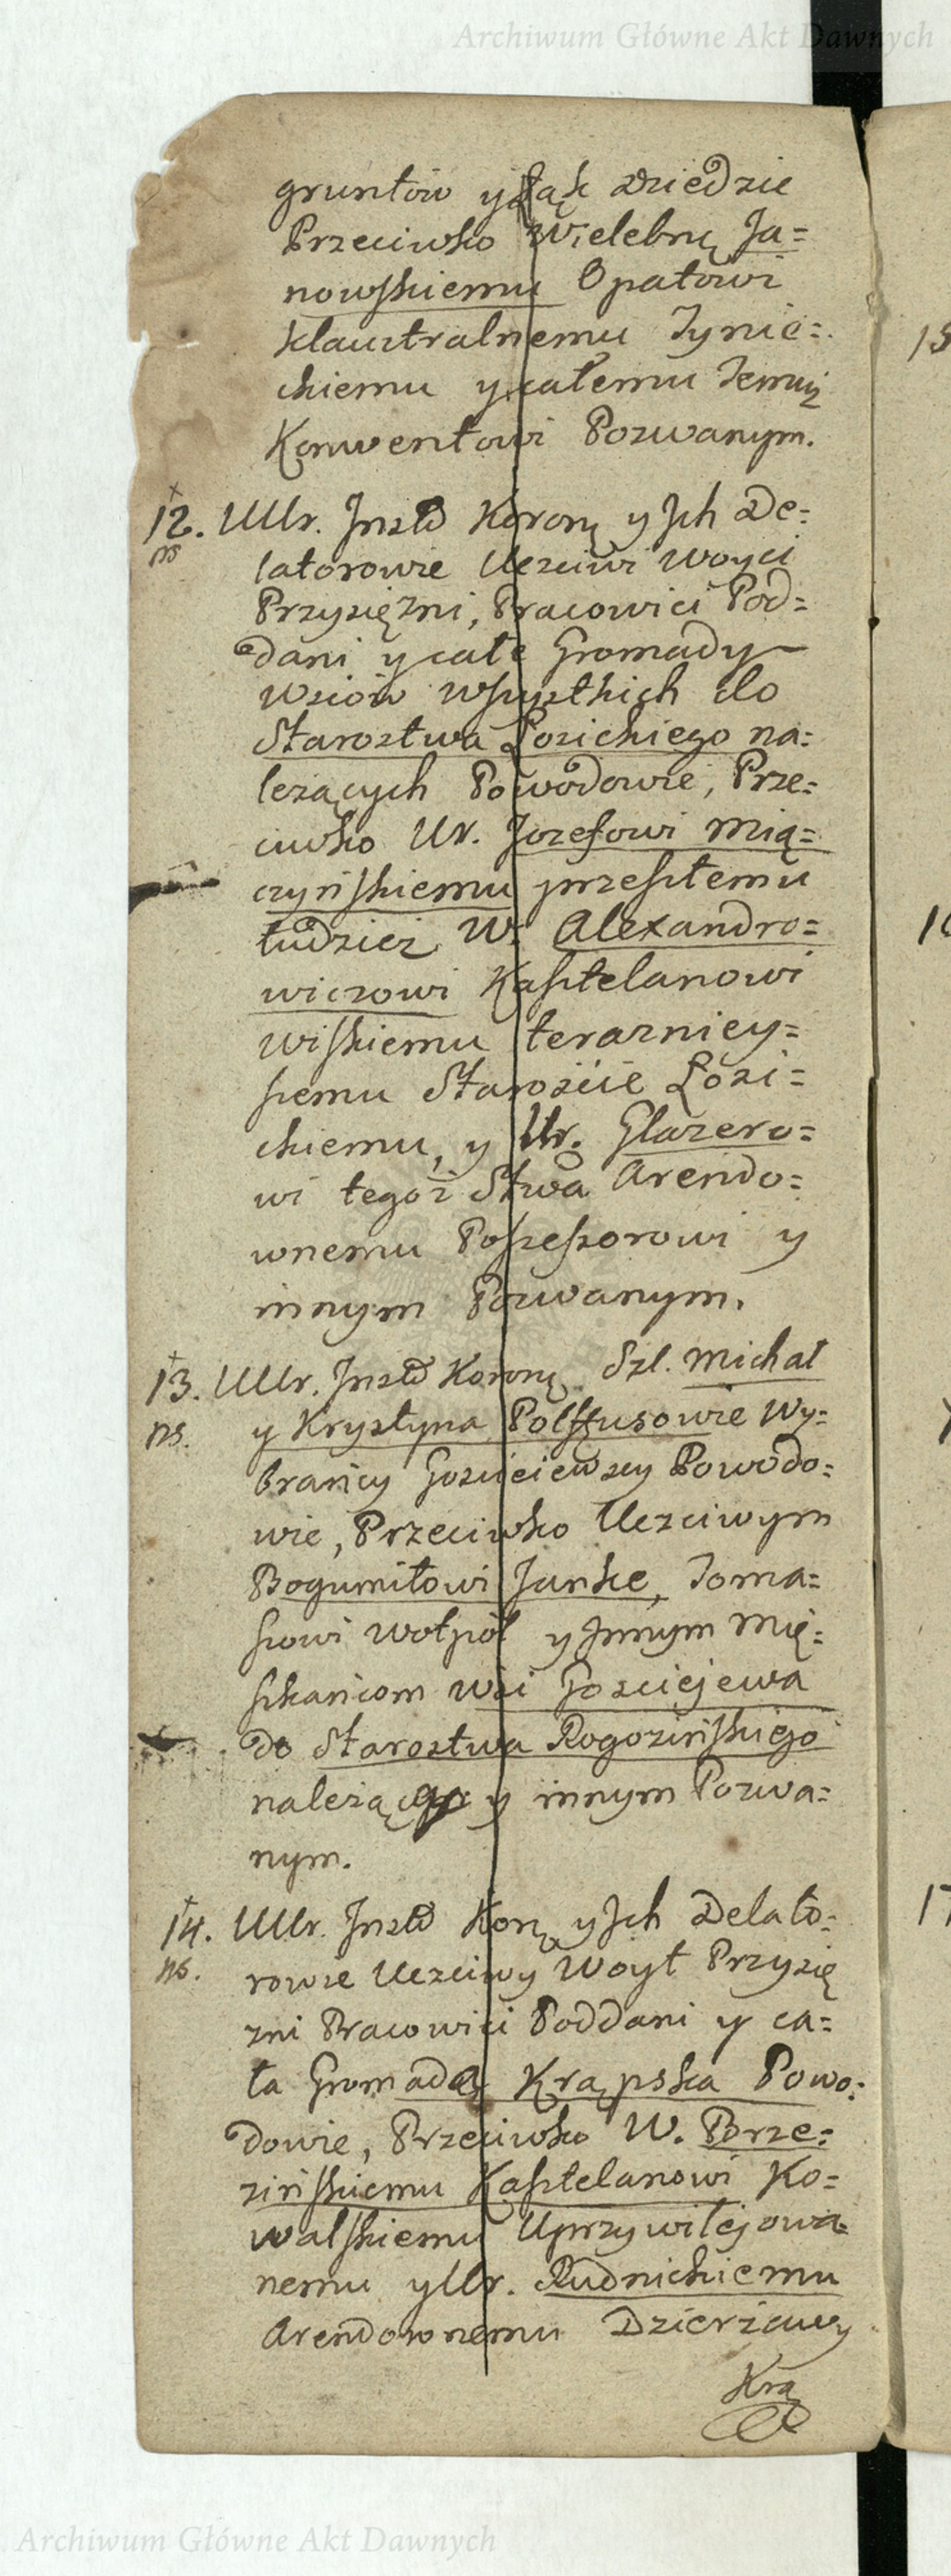 Archiwum Główne Akt Dawnych
gruntów y Łąk Dziedzic
Przeciwko Wielebnę Ja=
nowskiemu Opatowi
Klaustralnemu Tynie=
ckiemu y całemu Temuż
Konwentowi Pozwanym.
12. UUr. Jnsto Korony y Jch De=
ns
latorowie Uczciwi Woyci
Przysiężni, Pracowici Pod=
dani y całe Gromady
Wsiów wszystkich do
Starostwa Łosickiego na=
leżących Powodowie, Prze=
ciwko Ur. Jozefowi Mią=
czyńskiemu przeszłemu
tudzież W. Alexandro=
wiczowi Kasztelanowi
Wiskiemu teraźniey=
szemu Starośćie Łosi=
ckiemu, y Ur. Glazero=
wi tegoż Stwa Arendo=
wnemu Possessorowi y
innym Pozwanym.
13. UUr. Jnsto Korony Szl. Michał
ns.
y Krystyna Polffusowie Wy=
brańcy Gościeiewscy Powodo=
wie, Przeciwko Uczciwym
Bogumiłowi Janke, Toma=
szowi Wołpół y Jnnym Mię=
szkańcom Wsi Gościejewa
do Starostwa Rogozińskiego
należącey y innym Pozwa=
nym.
14. UUr. Jnsto Korą y Jch Delato=
ns.
rowie Uczciwy Woyt Przysię
żni Pracowici Poddani y ca=
ła Gromada Krąpska Powo=
dowie, Przeciwko W. Brze=
zińskiemu Kasztelanowi Ko=
walskiemu Uprzywilejowa=
nemu y Ur. Rudnickiemu
Arendownemu Dzierżawy
Krą
15
Archiwum Główne Akt Dawnych